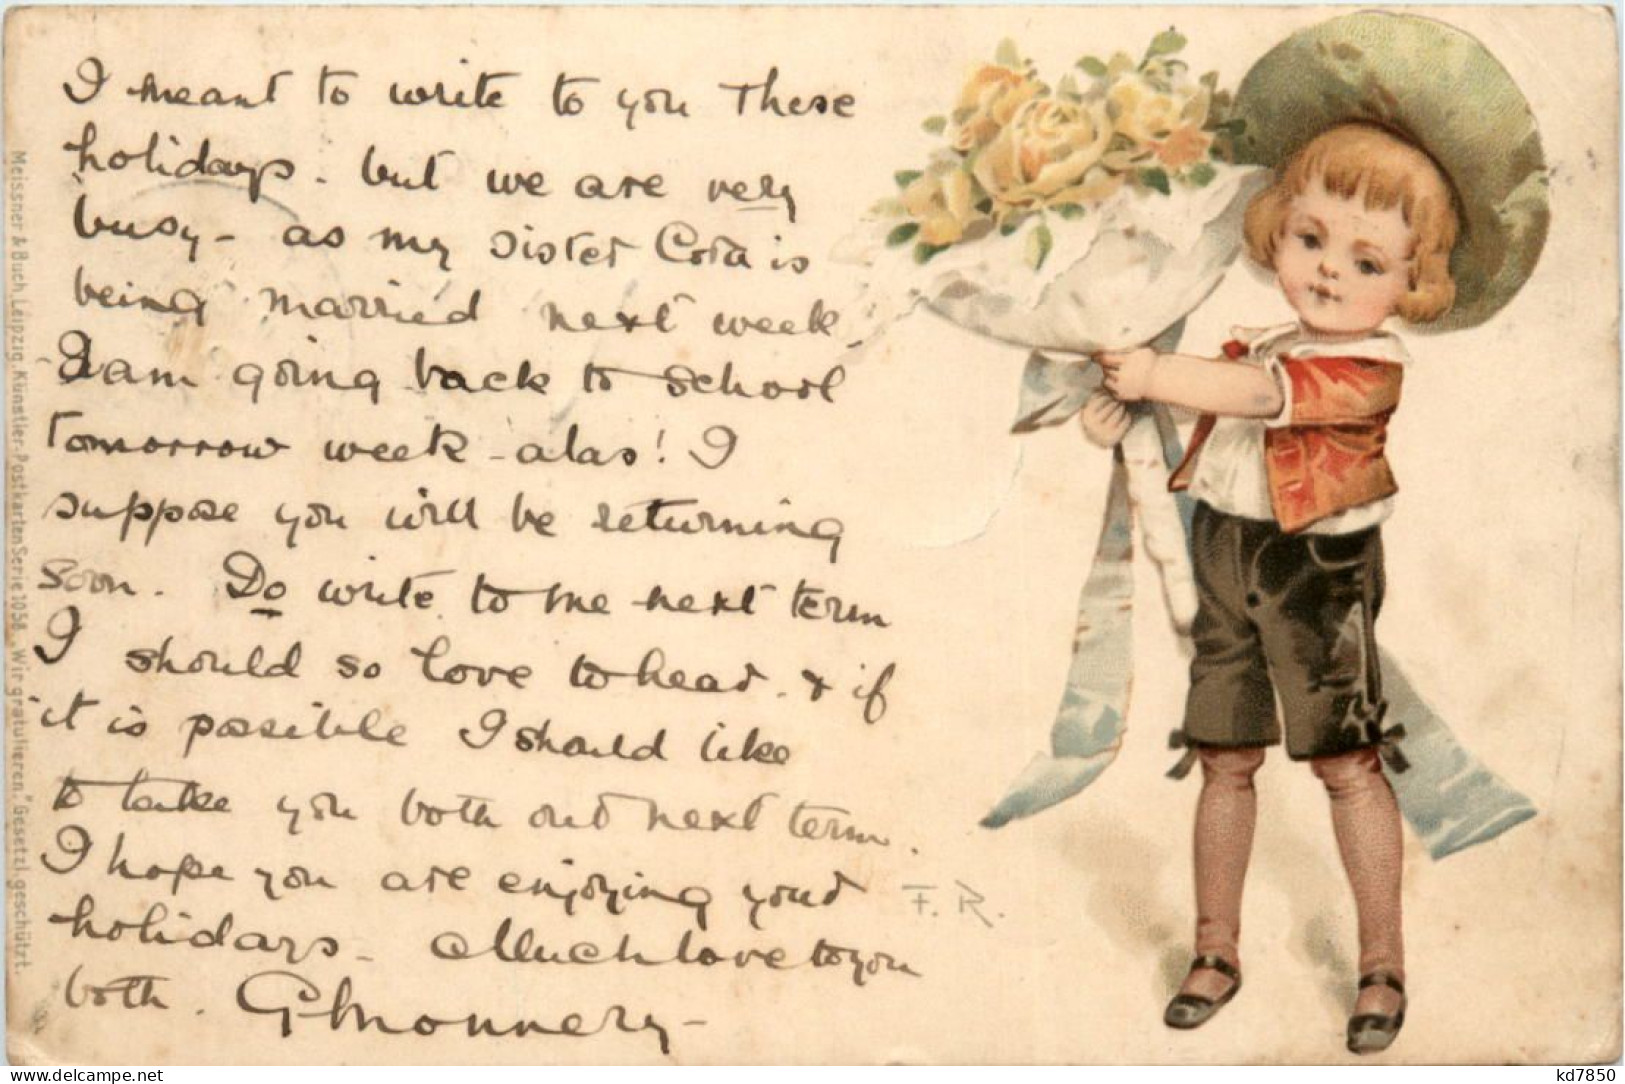 I meant to write to you these
holidays. but we are very
busy - as my sister Cora is
being married next week.
I am going back to school
tomorrow week - alas! I
suppose you will be returning
soon. Do write to me next term
I should so love to hear. & if
it is possible I should like
to take you both out next term.
I hope you are enjoying your
holidays - Much love to you
both.
F. R.
Meissner & Buch, Leipzig, Künstler-Postkarten Serie 1058. „Wir gratulieren." Gesetzl. geschützt.
www.delcampe.net
kd7850